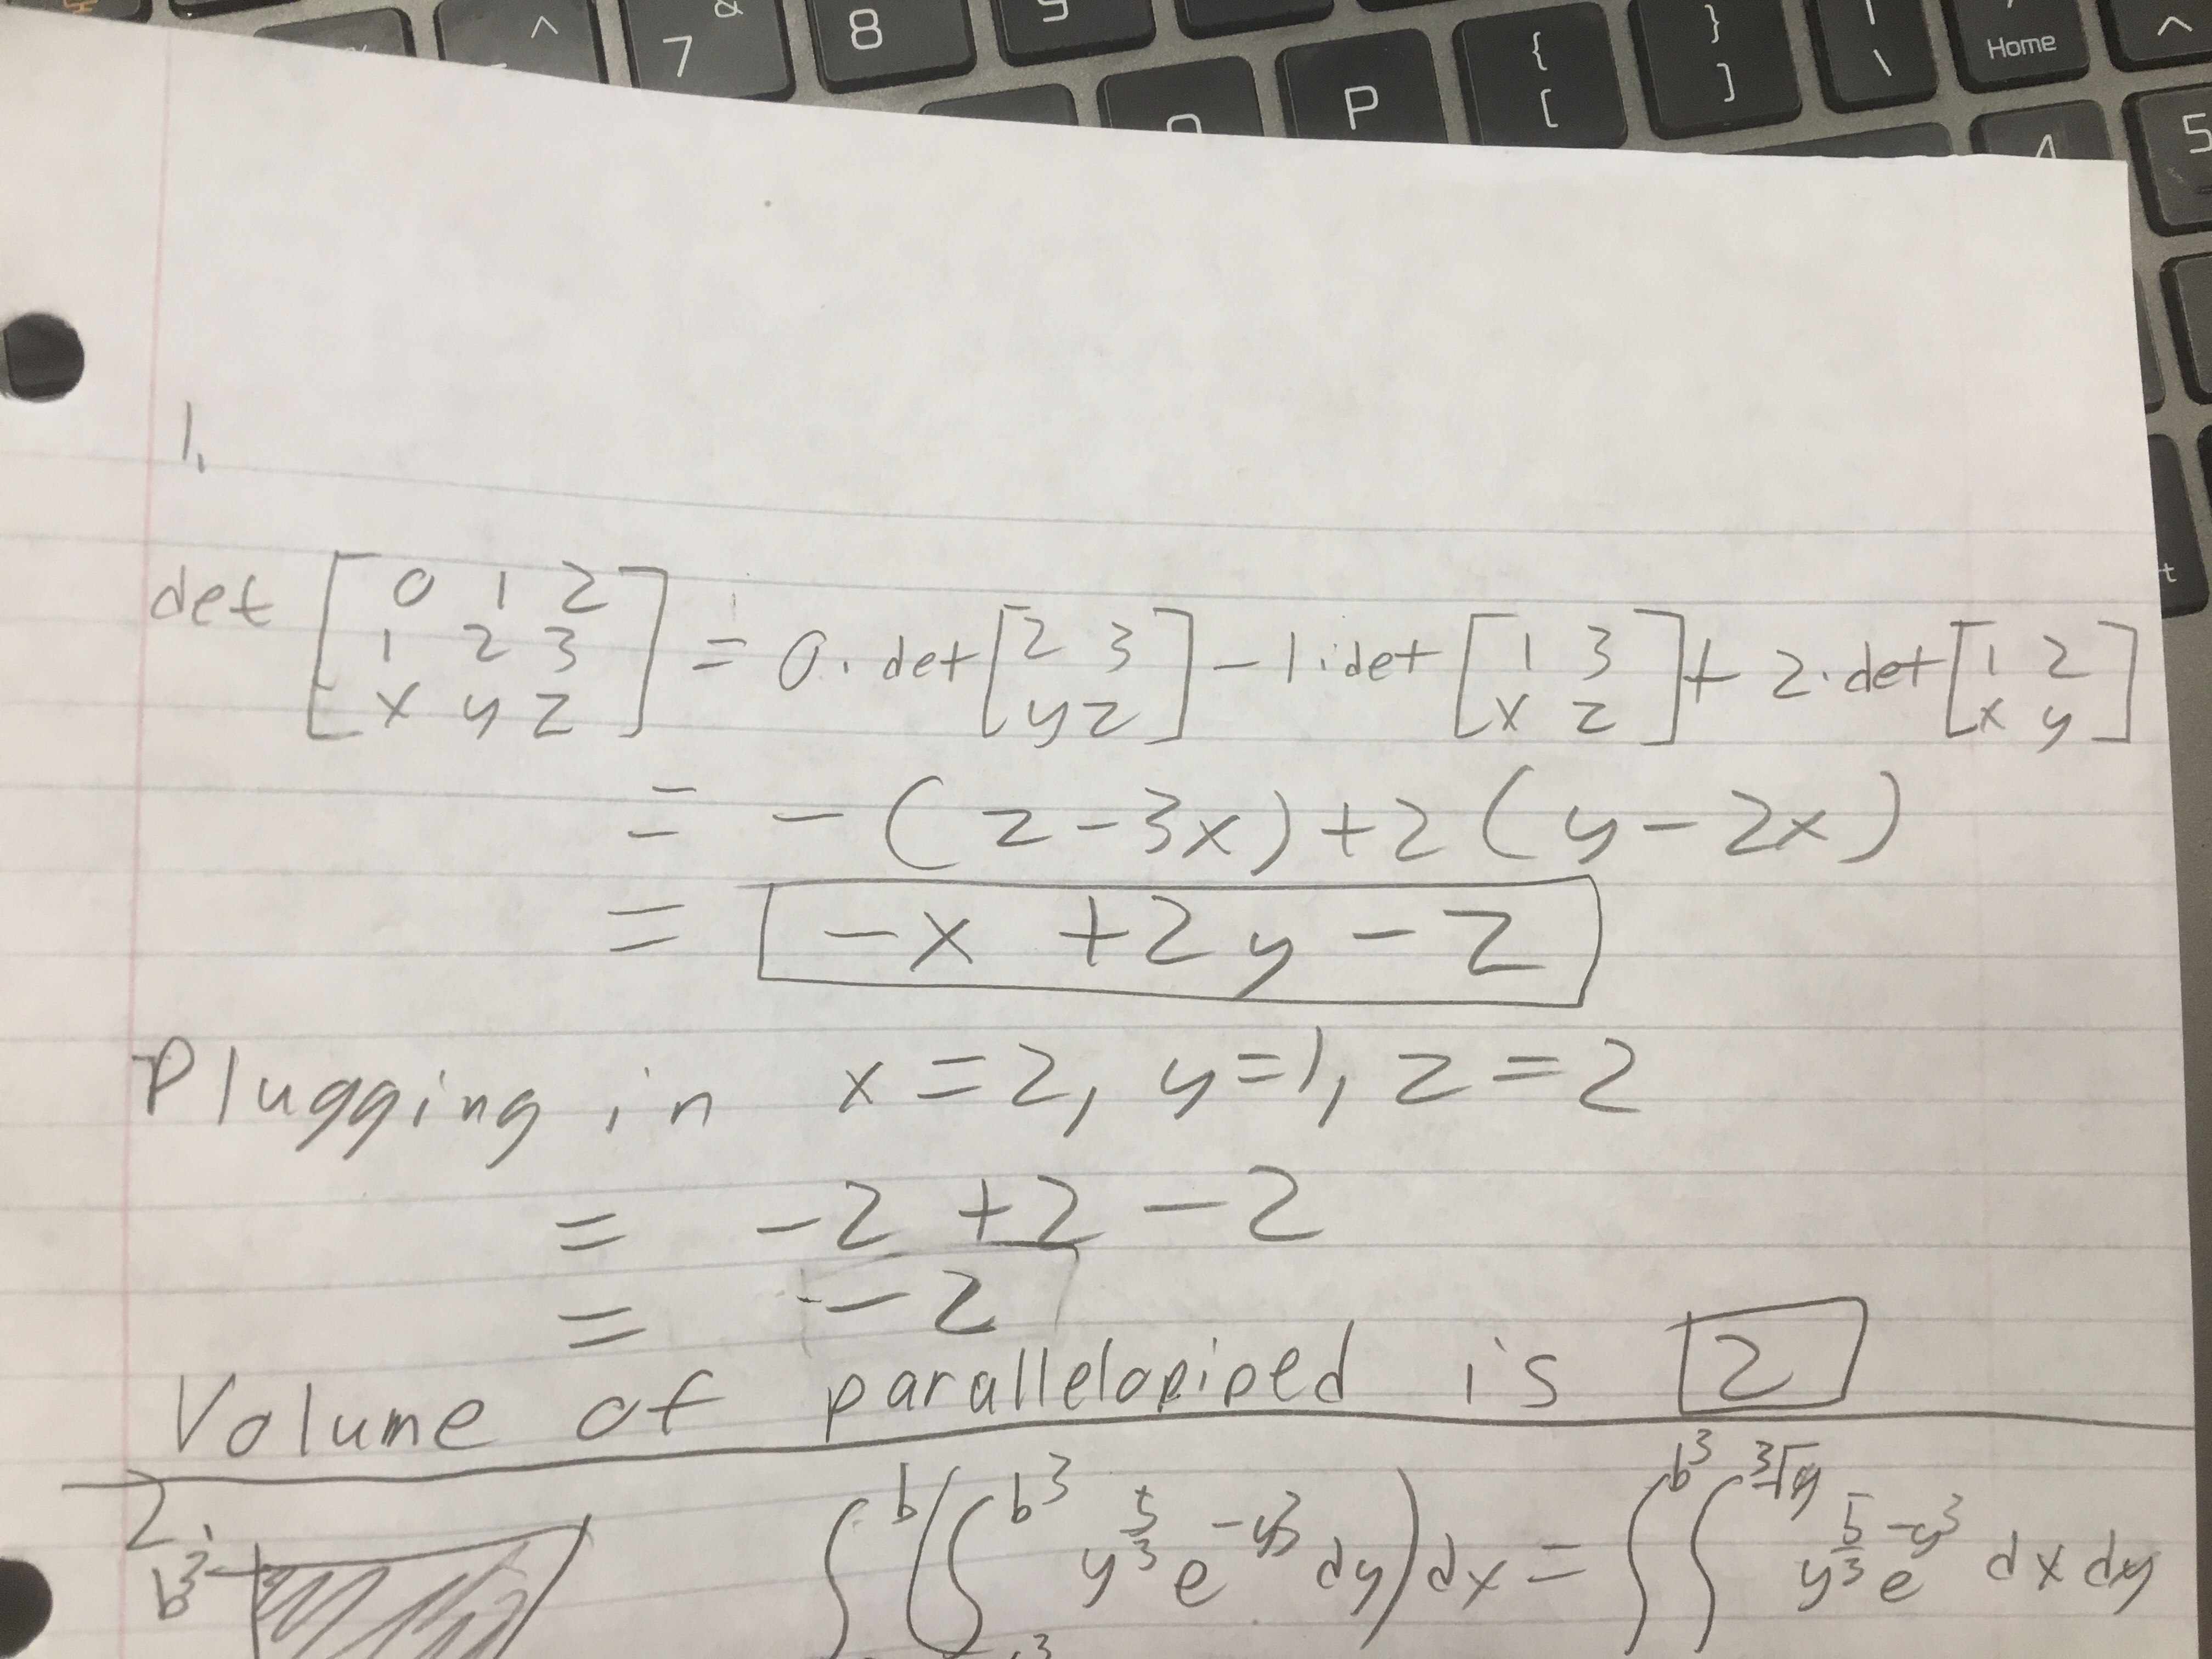 ^ & 7 8 9
O P { [ } ] | \ Home ^
4 5
1.
det [0 1 2; 1 2 3; x y z] = 0·det[2 3; y z] - 1·det[1 3; x z] + 2·det[1 2; x y]
= -(z-3x)+2(y-2x)
= -x +2y -z
Plugging in x=2, y=1, z=2
= -2 +2 -2
= -2
Volume of parallelopiped is 2
2.
b³ ∫^b (∫_x³^b³ y^(5/3) e^(-y³) dy) dx = ∫^b³ ∫^∛y y^(5/3) e^(-y³) dx dy